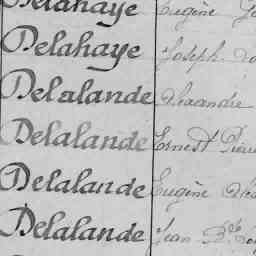 Delahaye Eugène
Delahaye Joseph
Delalande
Delalande Ernest Pierre
Delalande Eugène
Delalande Jean Bte